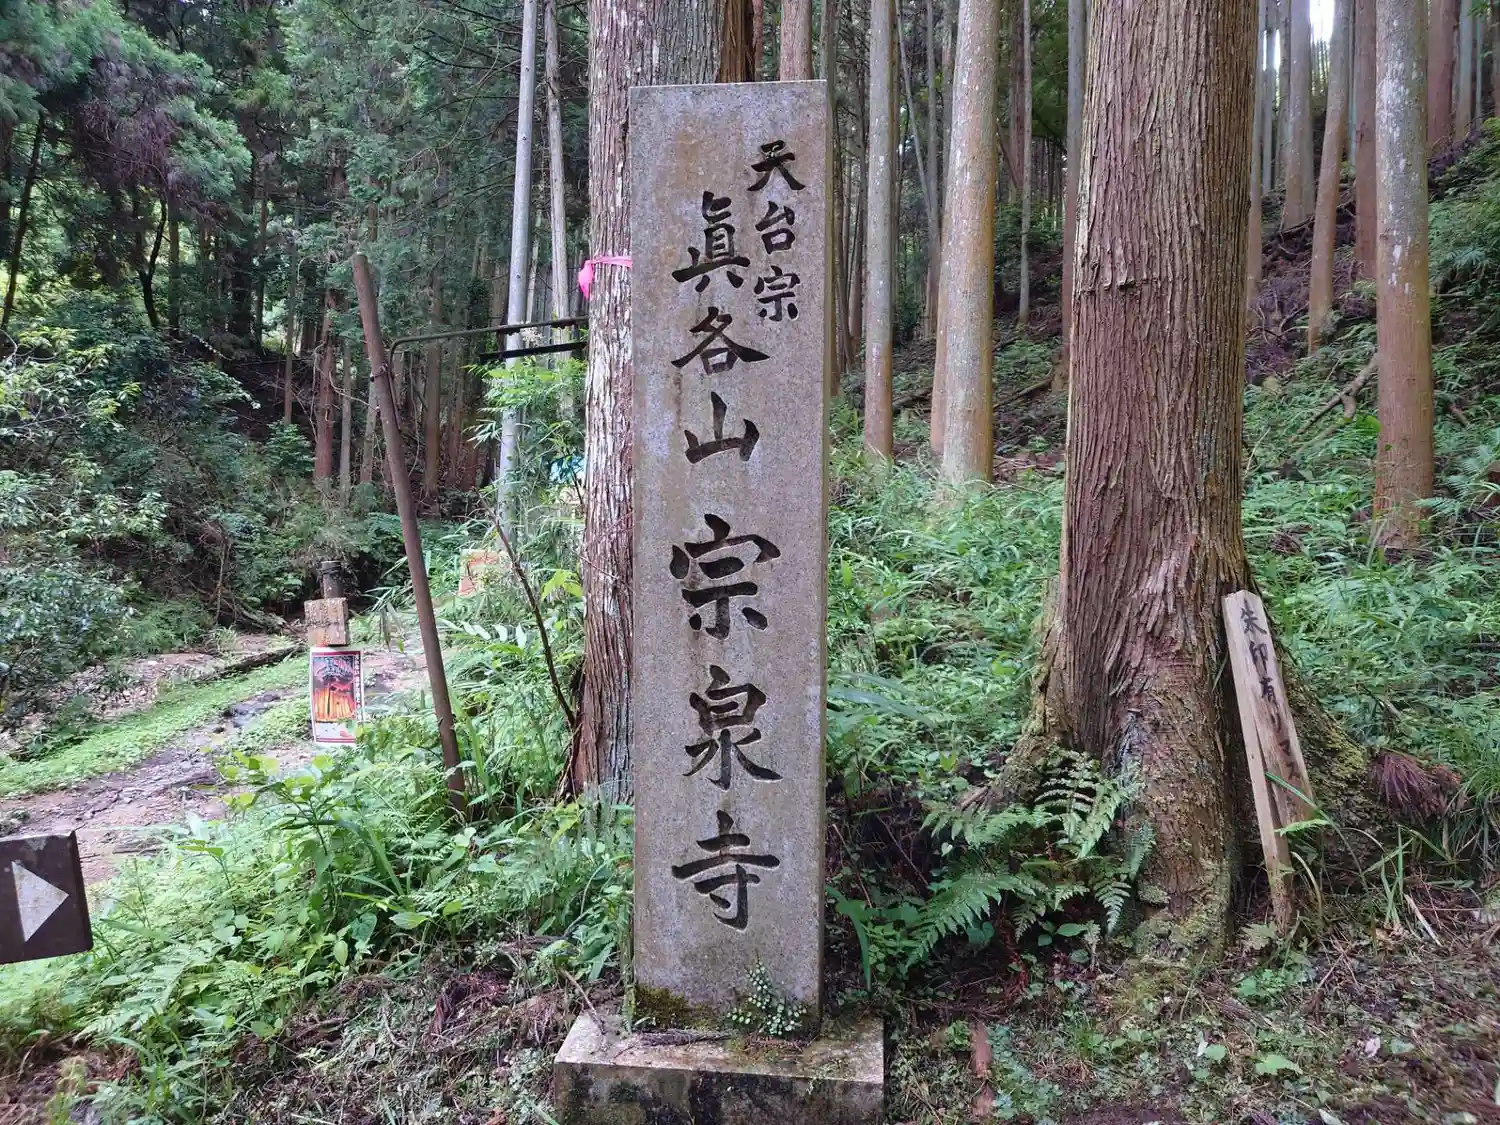 天台宗
眞名山宗泉寺
朱印有リマス